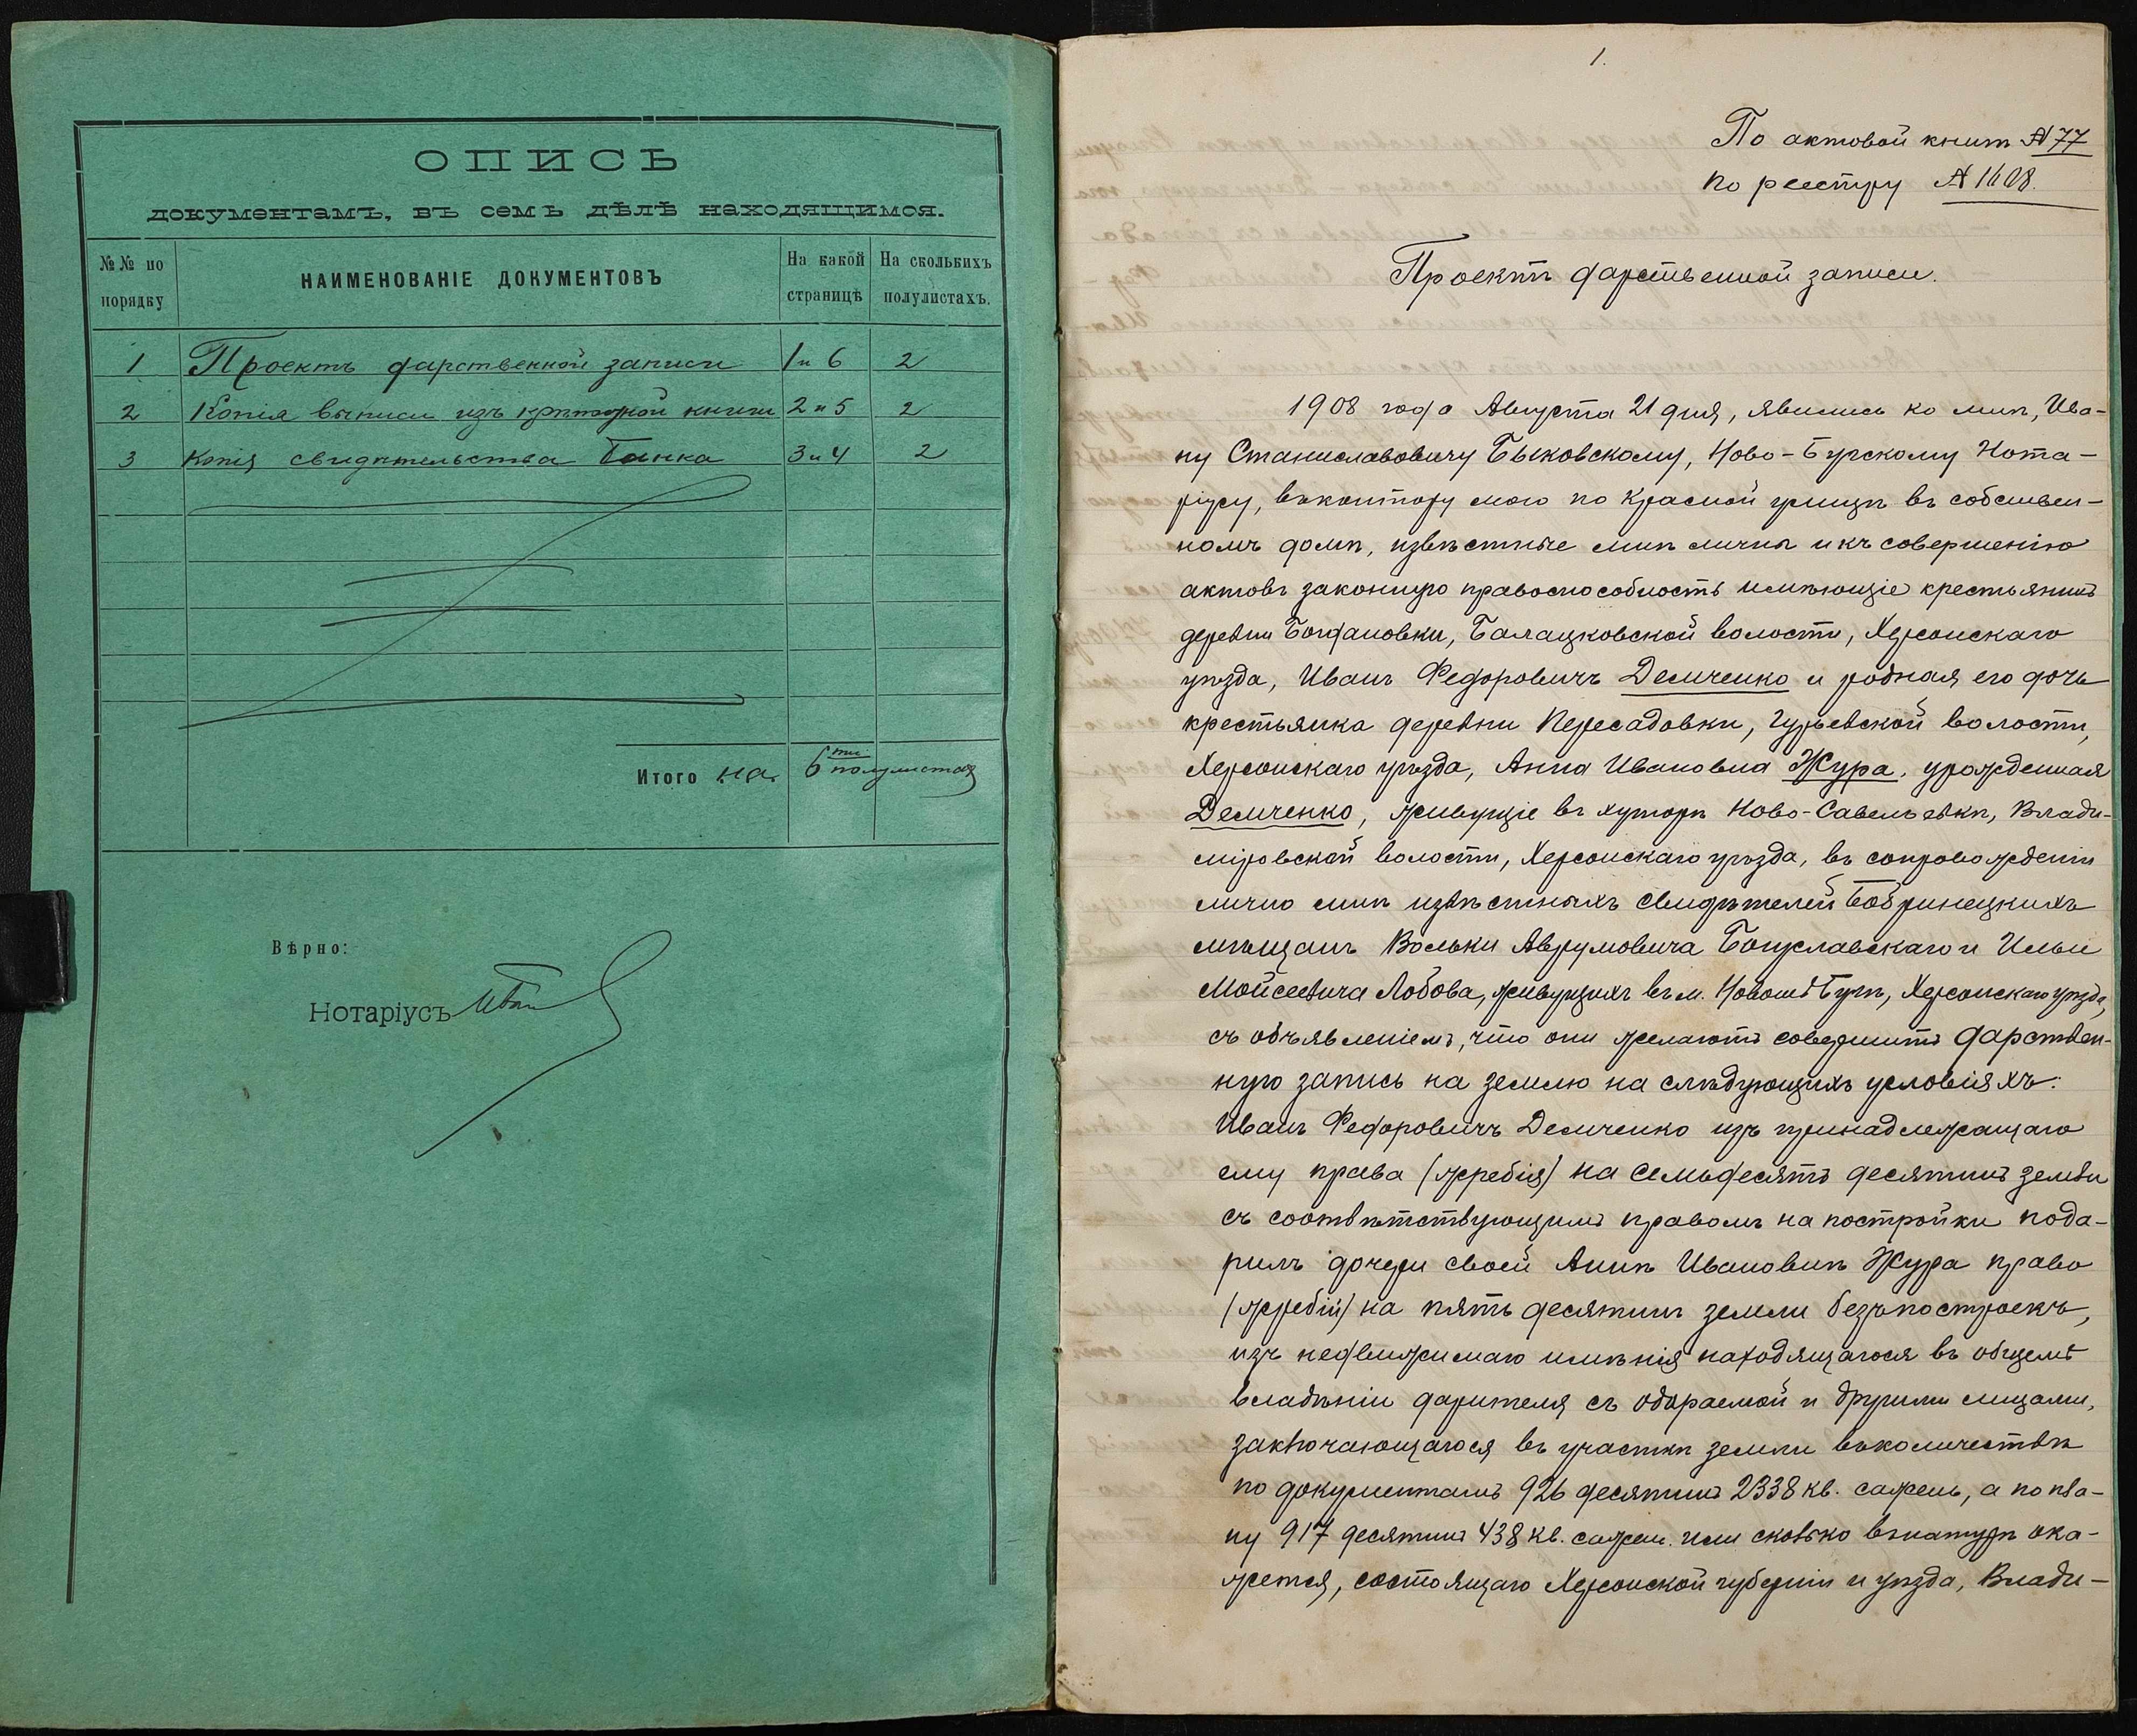 ОПИСЬ
документамъ, въ семъ дѣлѣ находящимся.
№№ по порядку
НАИМЕНОВАНІЕ ДОКУМЕНТОВЪ
На какой страницѣ
На сколькихъ полулистахъ.
1 Проектъ дарственной записи 1 и 6 2
2 Копія выписи изъ крѣпостной книги 2 и 5 2
3 Копія свидѣтельства Банка 3 и 4 2
Итого на 6ти полулистах
Вѣрно:
Нотаріусъ
1.
По актовой книгѣ № 77
по реестру № 1608.
Проектъ дарственной записи.
1908 года Августа 21 дня, явились ко мнѣ, Ива-
ну Станиславовичу Быковскому, Ново-Бугскому Нота-
ріусу, въ контору мою по Красной улицѣ въ собствен-
номъ домѣ, извѣстные мнѣ лично и къ совершенію
актовъ законную правоспособность имѣющіе крестьянинъ
деревни Богдановки, Балацковской волости, Херсонскаго
уѣзда, Иванъ Федоровичъ Демченко и родная его дочь
крестьянка деревни Пересадовки, Гурьевской волости,
Херсонскаго уѣзда, Анна Ивановна Жура, урожденная
Демченко, живущіе въ хуторѣ Ново-Савельевкѣ, Влади-
міровской волости, Херсонскаго уѣзда, въ сопровожденіи
лично мнѣ извѣстныхъ свидѣтелей Бобринецкихъ
мѣщанъ Вольки Аврумовича Богуславскаго и Ильи
Мойсеевича Лобова, живущихъ въ м. Новомъ Бугѣ, Херсонскаго уѣзда,
съ объявленіемъ, что они желаютъ совершить дарствен-
ную запись на землю на слѣдующихъ условіяхъ:
Иванъ Федоровичъ Демченко изъ принадлежащаго
ему права (жребія) на семьдесятъ десятинъ земли
съ соотвѣтствующимъ правомъ на постройки пода-
рилъ дочери своей Аннѣ Ивановнѣ Жура право
(жребій) на пять десятинъ земли безъ построекъ,
изъ недвижимаго имѣнія находящагося въ общемъ
владѣніи дарителя съ одаряемой и другими лицами,
заключающагося въ участкѣ земли въ количествѣ
по документамъ 926 десятинъ 2338 кв. сажень, а по пла-
ну 917 десятинъ 438 кв. сажен. или сколько въ натурѣ ока-
жется, состоящаго Херсонской губерніи и уѣзда, Влади-